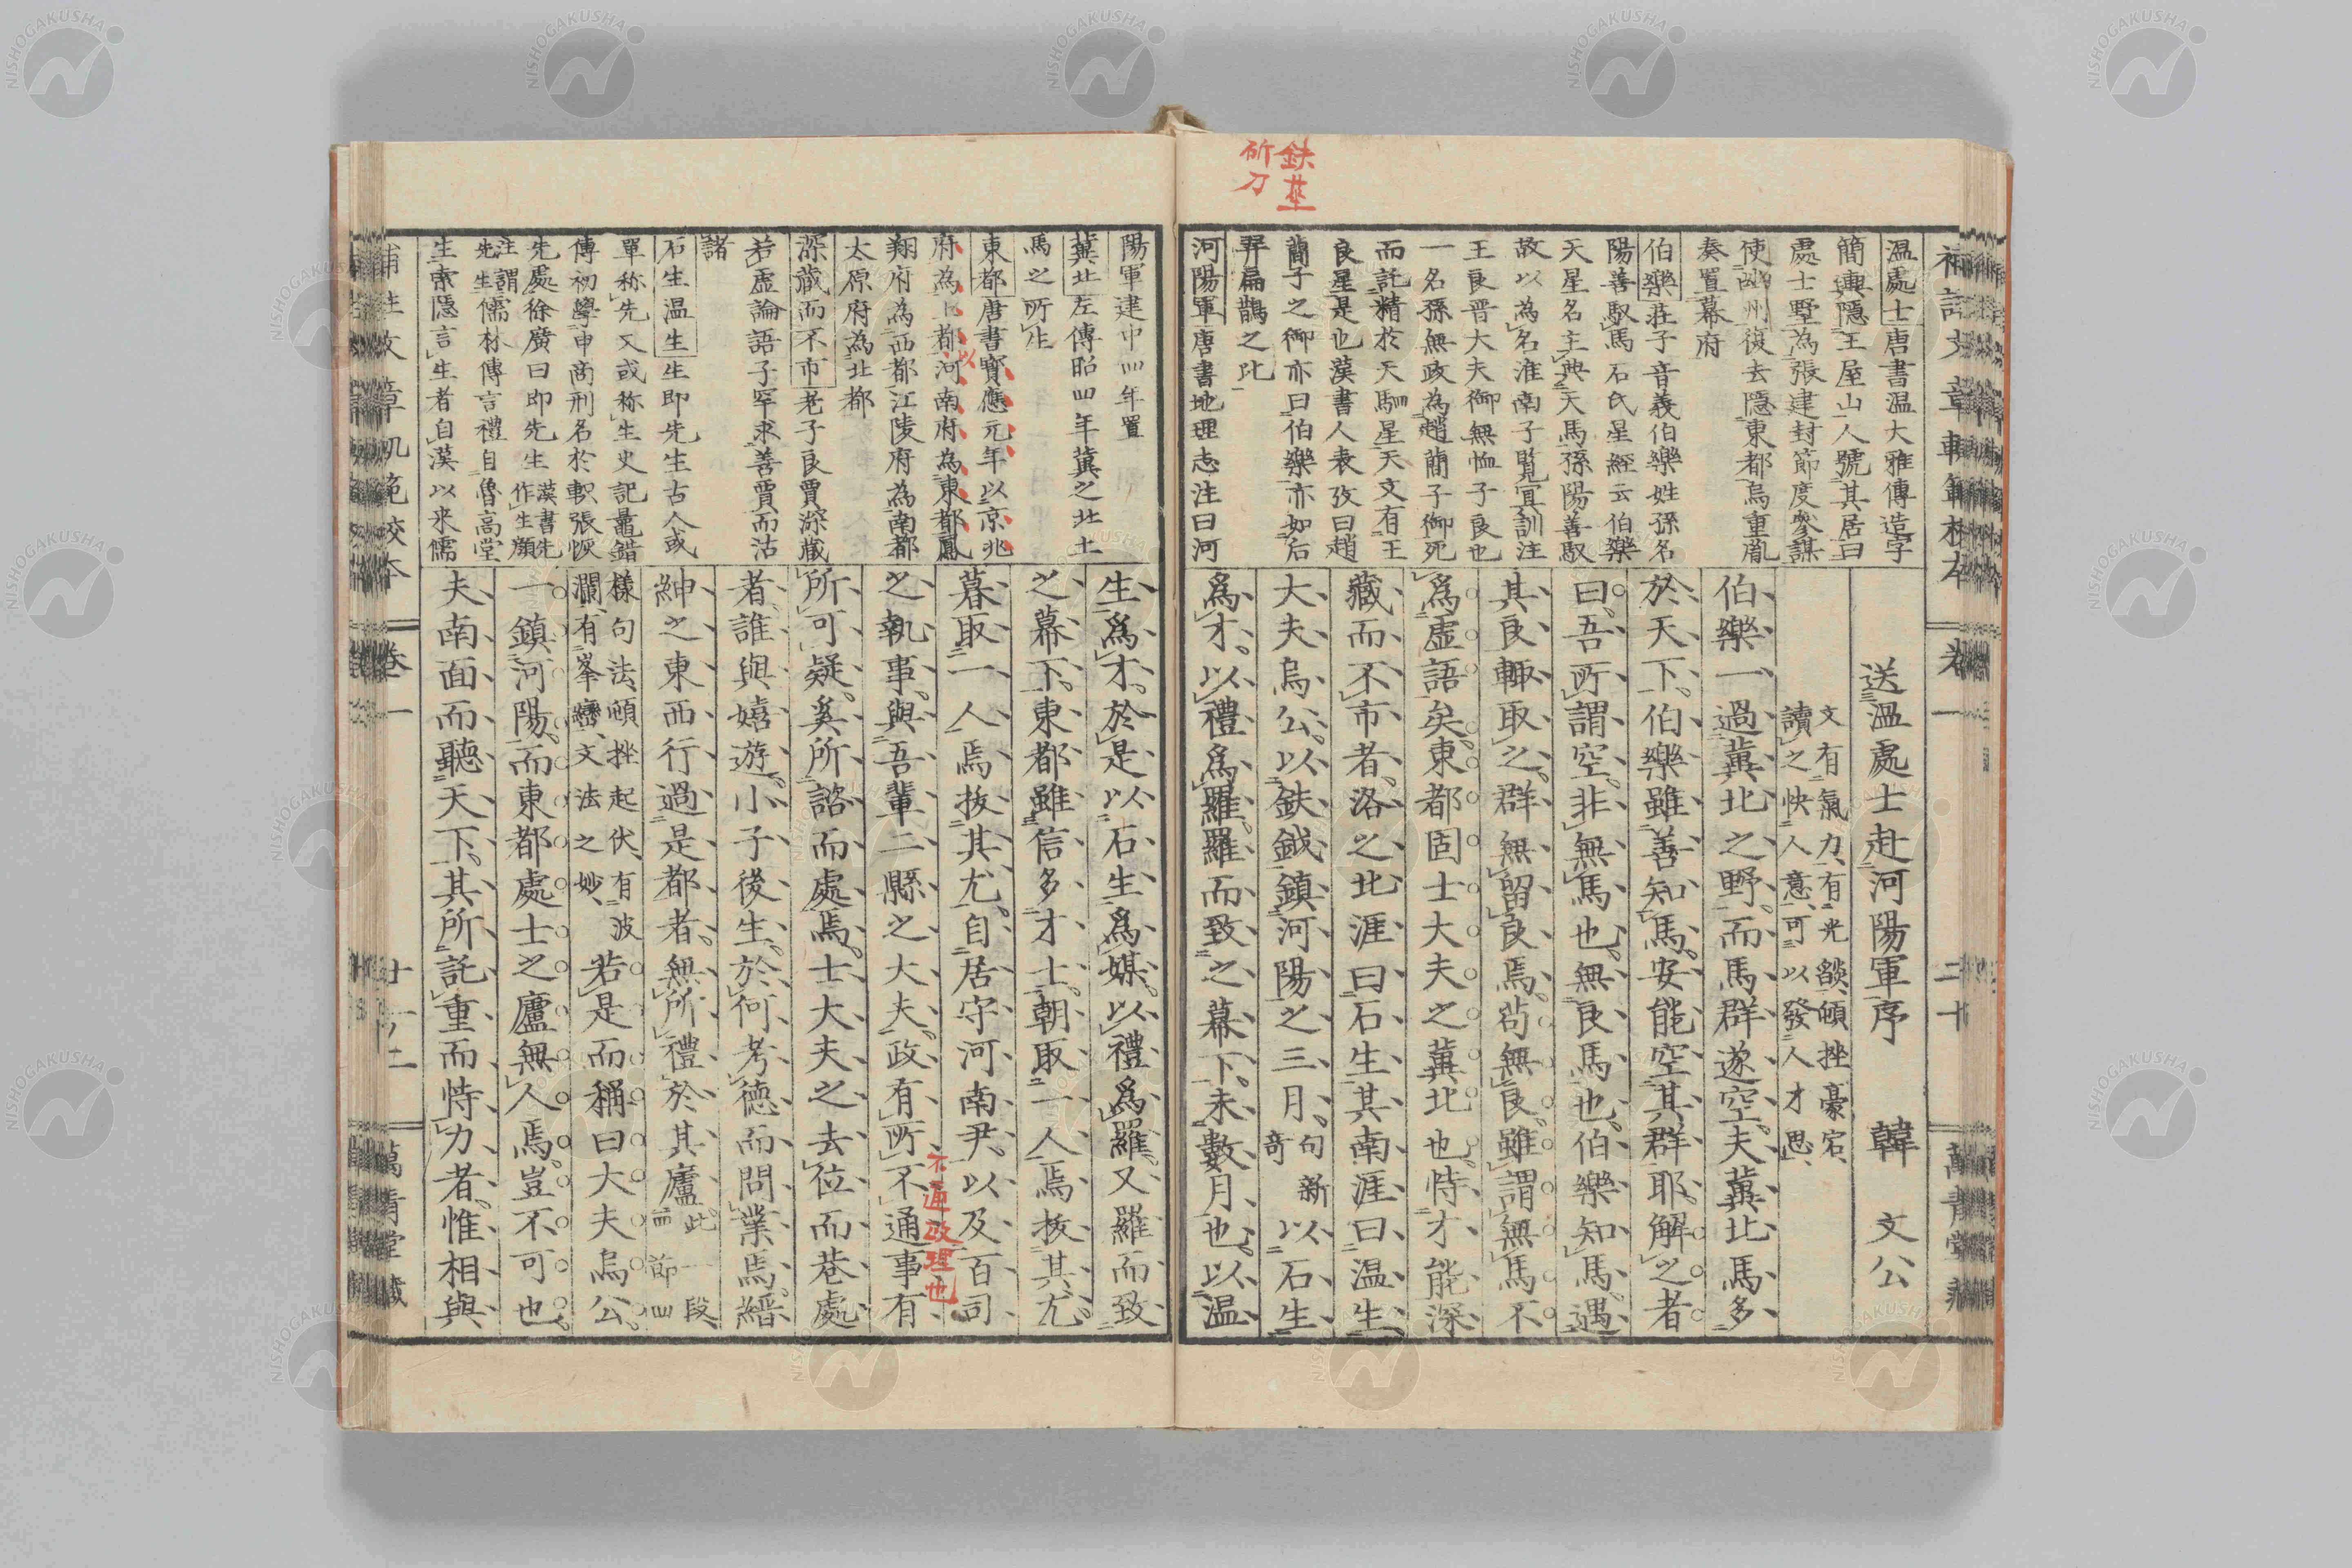 送溫處士赴河陽軍序 韓文公
文有氣力有光燄頓挫豪宕
讀之快人意可以發人才思
伯樂一過冀北之野而馬群遂空夫冀北馬多
於天下伯樂雖善知馬安能空其群耶解之者
曰吾所謂空非無馬也無良馬也伯樂知馬遇
其良輙取之群無留良焉苟無良雖謂無馬不
爲虛語矣東都固士大夫之冀北也恃才能深
藏而不市者洛之北涯曰石生其南涯曰溫生
大夫烏公以鈇鉞鎮河陽之三月句新奇以石生
爲才以禮爲羅羅而致之幕下未數月也以溫
溫處士唐書溫大雅傳造字
簡輿隱王屋山人號其居曰
處士墅為張建封節度參謀
使幽州復去隱東都烏重胤
奏置幕府
伯樂莊子音義伯樂姓孫名
陽善馭馬石氏星經云伯樂
天星名主典天馬孫陽善馭
故以為名淮南子覽冥訓注
王良晋大夫御無恤子良也
一名孫無政為趙簡子御死
而託精於天駟星天文有王
良星是也漢書人表攷曰趙
簡子之御亦曰伯樂亦如后
羿扁鵲之比
河陽軍唐書地理志注曰河
鈇莝
斫刀
卷一
二十
生爲才於是以石生爲媒以禮爲羅又羅而致
之幕下東都雖信多才士朝取一人焉拔其尤
暮取一人焉拔其尤自居守河南尹以及百司
之執事與吾輩二縣之大夫政有所不通事有
所可疑奚所諮而處焉士大夫之去位而巷處
者誰與嬉遊小子後生於何考德而問業焉縉
紳之東西行過是都者無所禮於其廬此一段一節四
樣句法頓挫起伏有波
瀾有峯巒文法之妙
若是而稱曰大夫烏公
一鎮河陽而東都處士之廬無人焉豈不可也
夫南面而聽天下其所託重而恃力者惟相與
陽軍建中四年置
冀北左傳昭四年冀之北土
馬之所生
東都唐書寶應元年以京兆
府為上都河南府為東都鳳
翔府為西都江陵府為南都
太原府為北都
深藏而不市老子良賈深藏
若虛論語子罕求善賈而沽
諸
石生溫生生即先生古人或
單称先又或称生史記鼂錯
傳初學申商刑名於軹張恢
先處徐廣曰即先生漢書先作生顏
注謂先生儒林傳言禮自魯高堂
生索隱言生者自漢以来儒
以
不通政理也
補註文章軌範校本
卷一